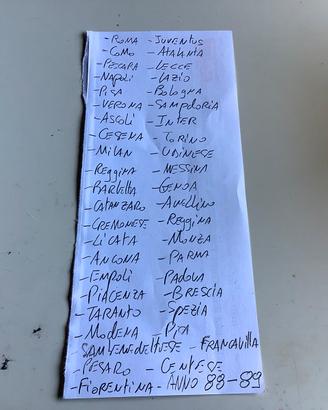 - ROMA - JUVENTUS
- COMO - ATALANTA
- PESCARA - LECCE
- NAPOLI - LAZIO
- PISA - BOLOGNA
- VERONA - SAMPDORIA
- ASCOLI - INTER
- CESENA - TORINO
- MILAN - UDINESE
- REGGINA - MESSINA
- BARLETTA - GENOA
- CATANZARO - AVELLINO
- CREMONESE - REGGINA
- LICATA - MONZA
- ANCONA - PARMA
- EMPOLI - PADOVA
- PIACENZA - BRESCIA
- TARANTO - SPEZIA
- MODENA - PISA
SAMBENEDETTESE - FRANCAVILLA
- PESARO - CENTESE
- FIORENTINA - ANNO 88-89